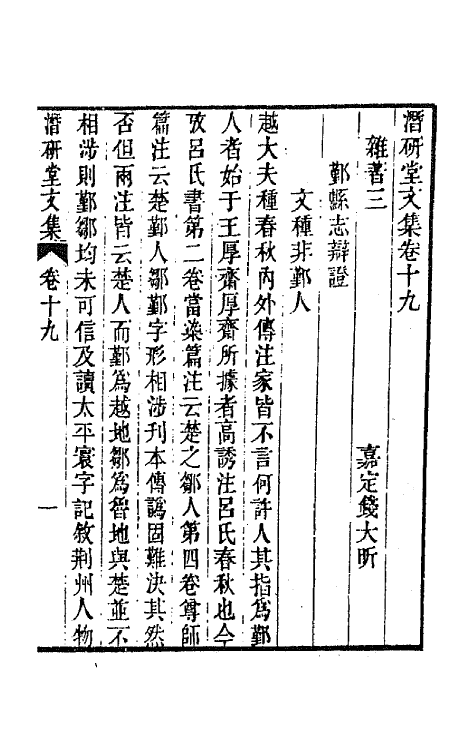 潛研堂文集卷十九
嘉定錢大昕
雜著三
鄞縣志辯證
文種非鄞人
越大夫種春秋內外傳注家皆不言何許人其指為鄞
人者始于王厚齋厚齋所據者高誘注呂氏春秋也今
攷呂氏書第二卷當染篇注云楚之鄒人第四卷尊師
篇注云楚鄞人鄒鄞字形相涉刊本傳譌固難決其然
否但兩注皆云楚人而鄞為越地鄒為魯地與楚並不
相涉則鄞鄒均未可信及讀太平寰宇記敘荆州人物
潛研堂文集
卷十九
一